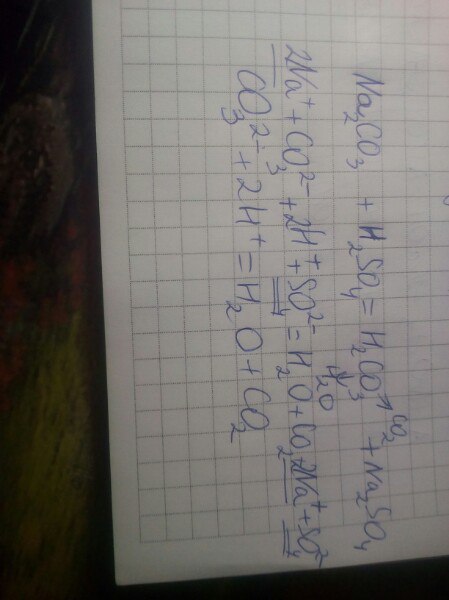 Na₂CO₃ + H₂SO₄ = H₂CO₃ + Na₂SO₄
CO₂
H₂O
2Na⁺ + CO₃²⁻ + 2H⁺ + SO₄²⁻ = H₂O + CO₂ + 2Na⁺ + SO₄²⁻
CO₃²⁻ + 2H⁺ = H₂O + CO₂